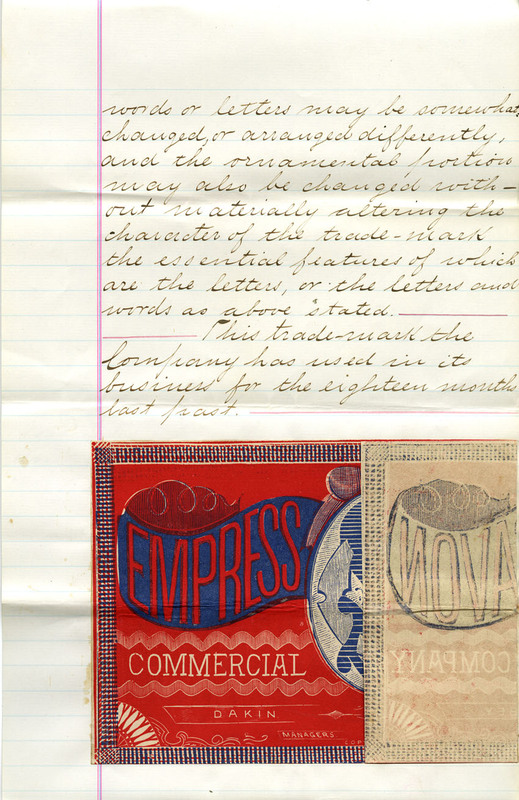 words or letters may be somewhat
changed, or arranged differently,
and the ornamental portion
may also be changed with-
out materially altering the
character of the trade-mark
the essential features of which
are the letters, or the letters and
words as above stated.
This trade-mark the
Company has used in its
business for the eighteen months
last past.
EMPRESS
NOVA
COMMERCIAL
COMPANY
DAKIN
MANAGERS